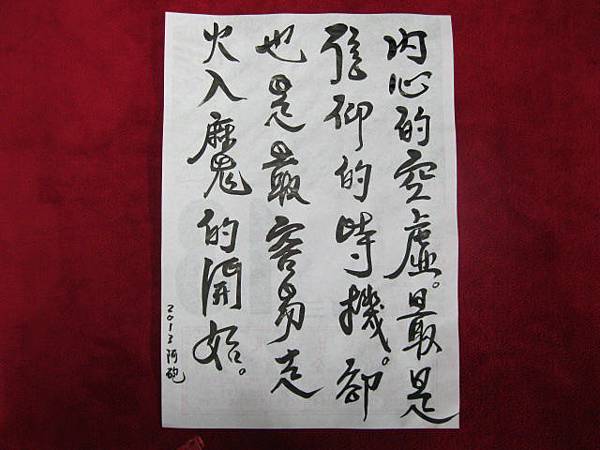 內心的空虛。最是
信仰的時機。卻
也是最容易走
火入魔的開始。
2013阿砲